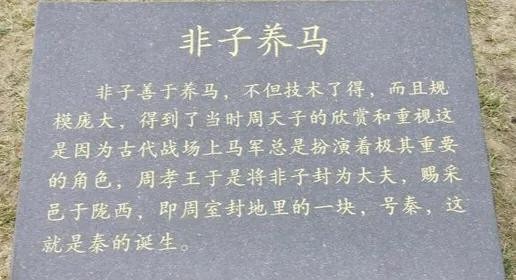 非子养马
非子善于养马，不但技术了得，而且规
模庞大，得到了当时周天子的欣赏和重视这
是因为古代战场上马军总是扮演着极其重要
的角色，周孝王于是将非子封为大夫，赐采
邑于陇西，即周室封地里的一块，号秦，这
就是秦的诞生。